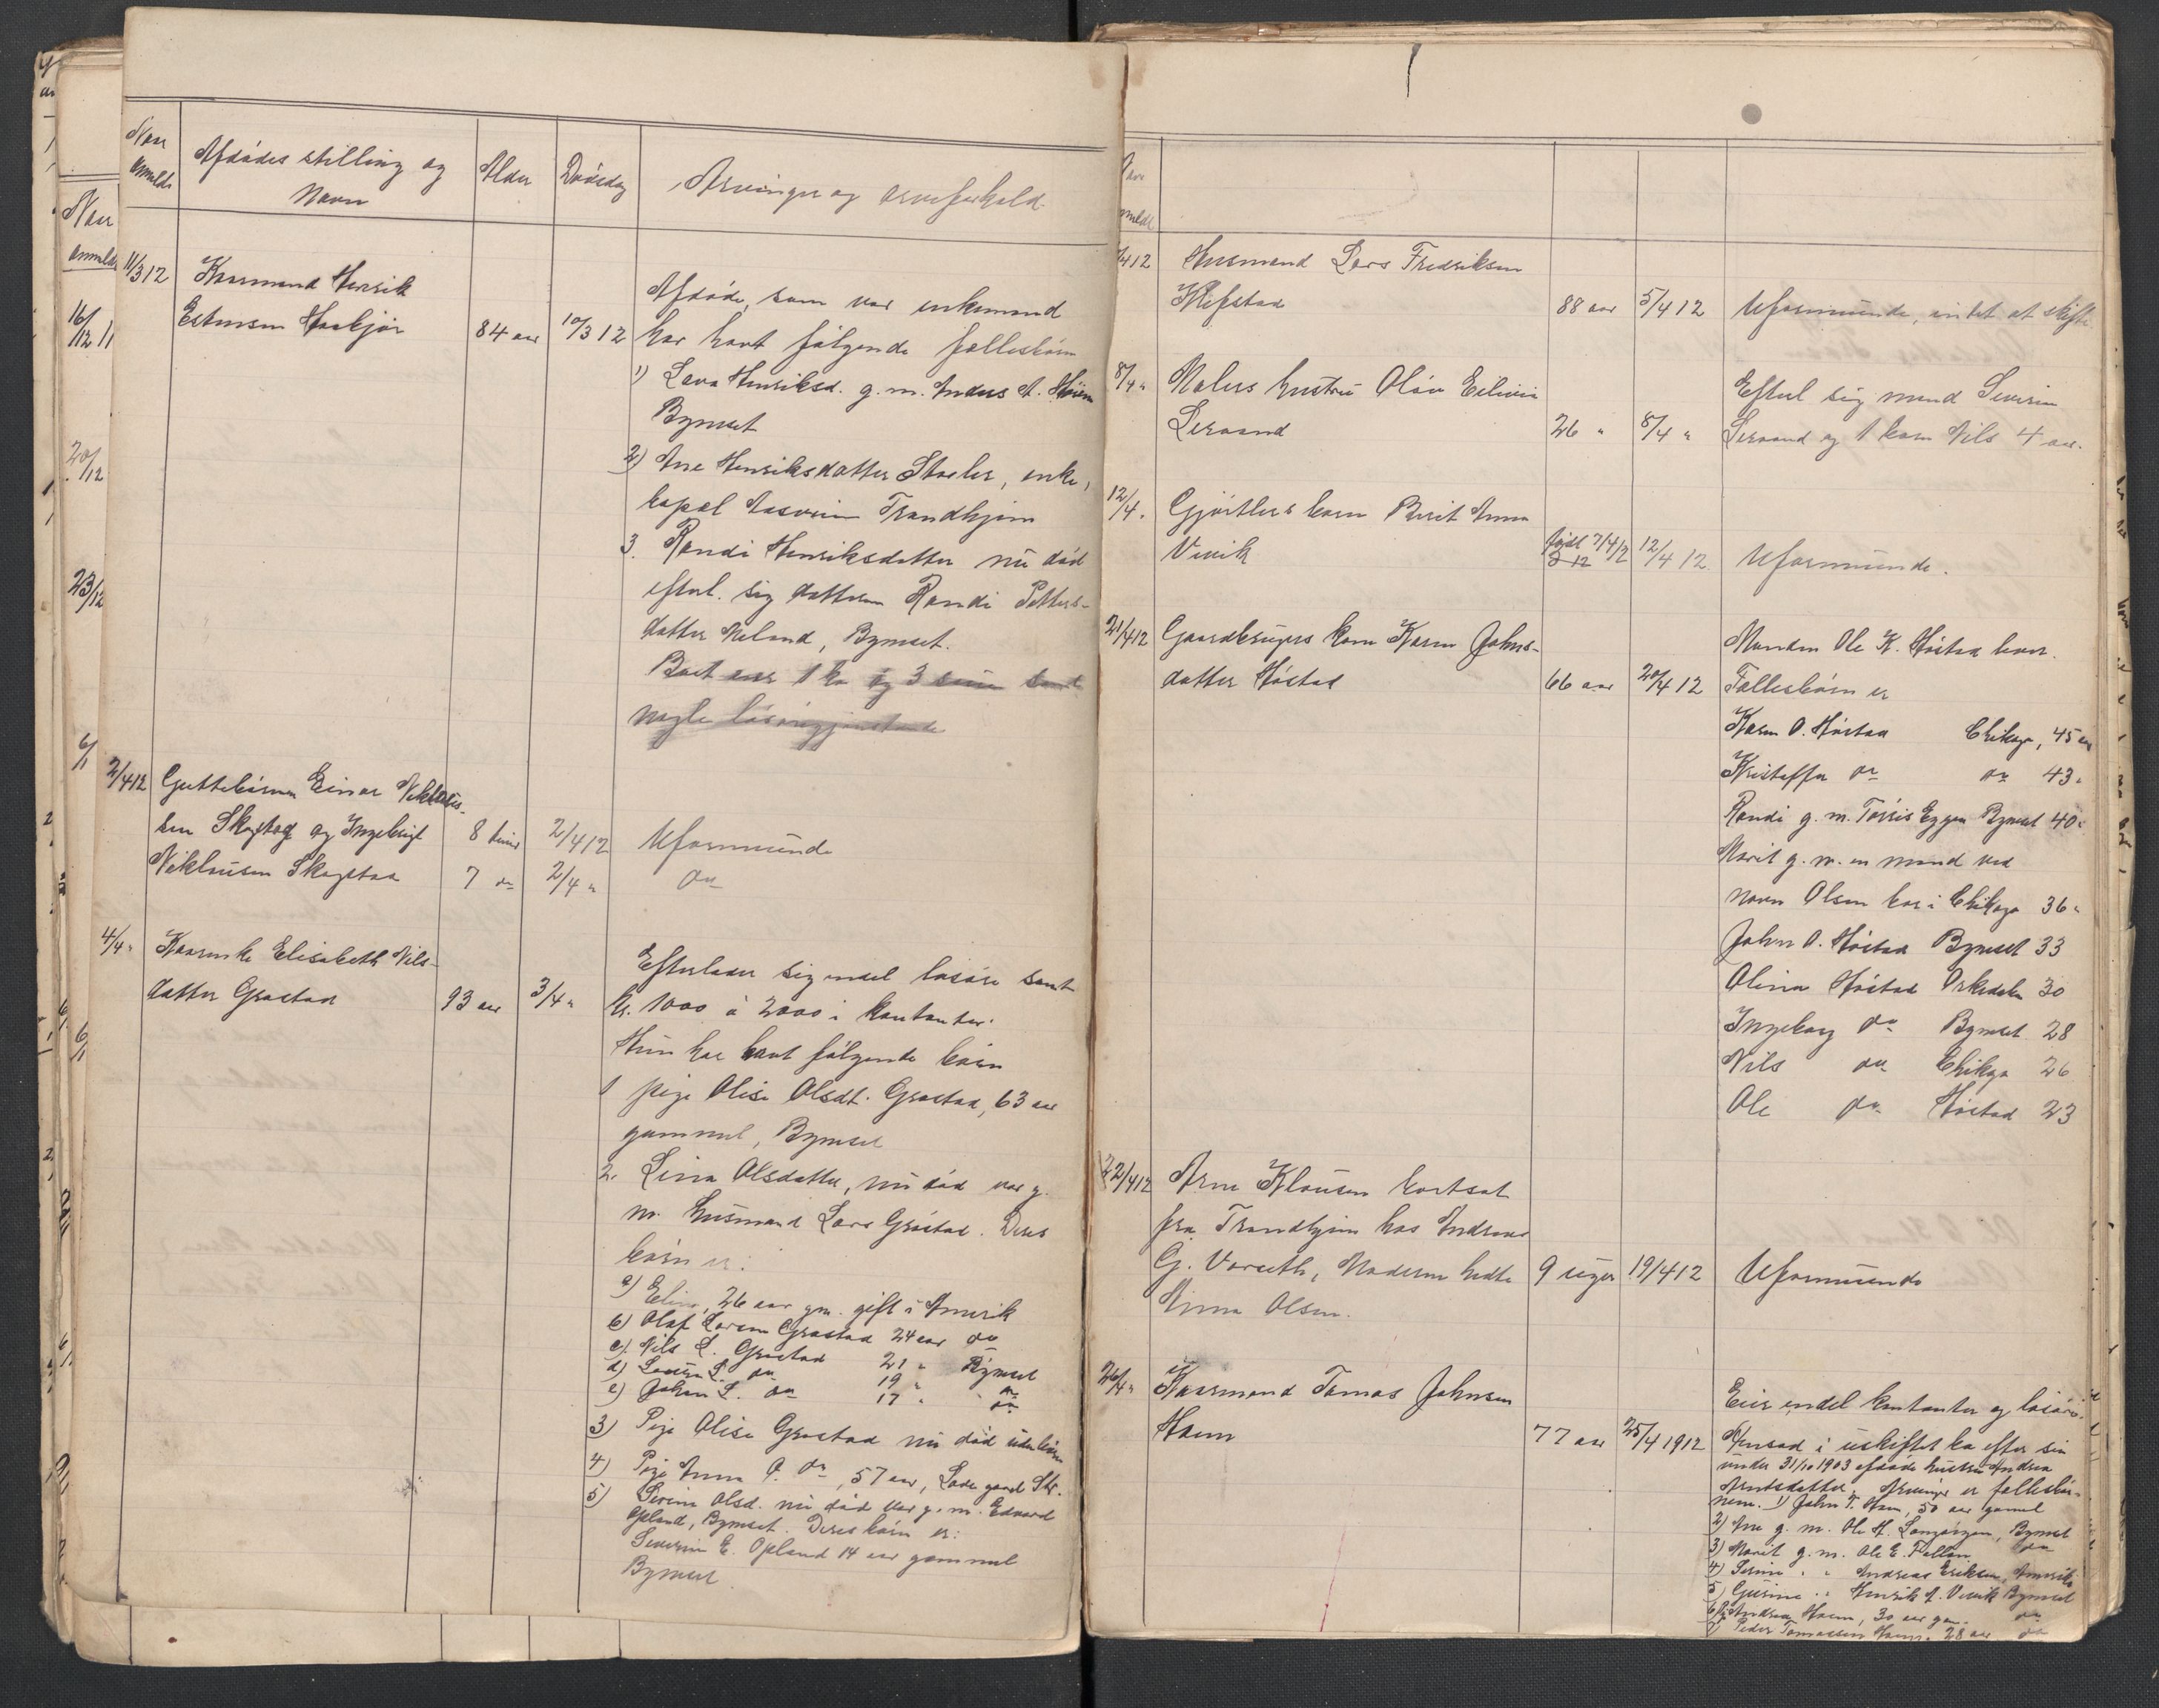 Naar
anmeldt
Afdödes stilling og
Navn
Alder
Dödsdag
Arvinger og arveforhold
11/3 12
Kaarmand Henrik
Estensen Haakjör
84 aar
10/3 12
Afdöde, som var enkemand
har havt fölgende fællesbörn
1) Lava Henriksd. g. m. Anders A. Höiem
Bynæset
2) Ane Henriksdatter Stavler, enke,
kapel Aasveien Trondhjem
3. Randi Henriksdatter nu död
efterl. sig datteren Randi Petters-
datter Meland, Bynæset.
Boet eier 1 ko og 3 sauer samt
nogle lösöregjenstande
2/4 12
Guttebörnene Einar Niklaus-
sen Skogstad og Ingebrigt
Niklausen Skogstad
8 timer
7 do
2/4 12
2/4 "
Uformuende
do
4/4 "
Kaarenke Elisabeth Nils-
datter Grostad
93 aar
3/4 "
Efterlader sig endel lösöre samt
kr. 1000 à 2000 i kontanter.
Hun har havt fölgende börn
1 pige Olise Olsdt. Grostad, 63 aar
gammel, Bynæset
2. Lina Olsdatter, nu död var g.
m. husmand Lars Gröstad. Deres
börn er:
a) Elin, 26 aar gm. gift i Amerik
b) Olaf Larsen Grostad 24 aar do
c) Nils L. Grostad 21 " Bynæset
d) L. do 19 " do
e) Johan L. do 17 " do
3) Pige Olise Grostad nu död uden börn
4) Pige Anna O. do, 57 aar, Lade gaard Str.
5) Serine Olsd. nu död var g. m. Edvard
Opland, Bynæset. Deres börn er:
Severin E. Opland 14 aar gammel
Bynæset.
Naar
anmeldt
/4 12
Husmand Lars Fredriksen
Klefstad
88 aar
5/4 12
Uformuende, intet at skifte
8/4 "
Malers hustru Olöv Eilivia
Leraand
26 "
8/4 "
Efterl sig mand Severin
Leraand og 1 barn Nils 4 aar.
12/4.
Gjörtlers barn Berit Anna
Vivik
född 7/4 12
12/4 12
Uformuende.
21/4 12
Gaardbrugers kone Karen Johns-
datter Höstad
66 aar
20/4 12
Manden Ole K. Höstad lever.
Fællesbörn er
Karen O. Höstad Chikago, 45 aar
Kristoffer do do 43 "
Randi g. m. Törris Eggen Bynæset 40 "
Marit g. m. en mand ved
navn Olsen bor i Chikago 36 "
John O. Höstad Bynæset 33
Olina Höstad Orkedalen 30
Ingeborg do Bynæset 28
Nils do Chikago 26
Ole do Höstad 23
22/4 12
Arne Klausen bortsat
fra Trondhjem hos Andreas
G. Vorseth, Moderen hedte
Anna Olsen.
9 uger
19/4 12
Uformuende
26/4 "
Kaarmand Tomas Johnsen
Haem
77 aar
25/4 1912
Eier endel kontanter og lösöre.
Hensad i uskiftet bo efter sin
under 31/10 1903 afdöde hustru Andrea
Arntsdatter. Arvinger er fællesbör-
nene. 1) John T. Haem, 50 aar gammel
2) Ane g. m. Ole H. Langörgen, Bynæset
3) Marit g. m. Ole E. Fallan do
4) Serine " " Andreas Eriksen, Amerika
5) Gurine " " Henrik A. Vivik Bynæset
6) Andrea Haem, 30 aar gm. do
7) Peder Tomassen Haem, 28 aar do
Naar
anmeldt
16/12 11
20/12
23/12
6/1
6/1